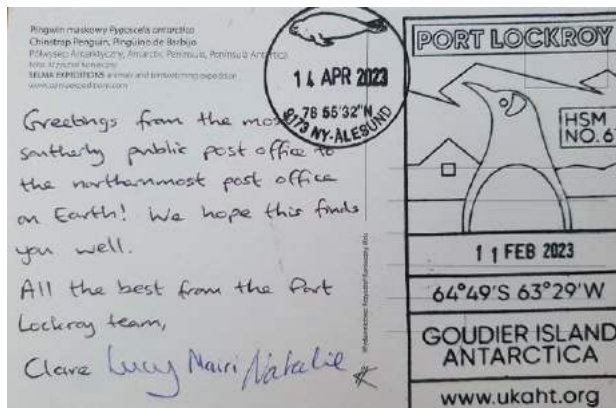 Pingwin maskowy Pygoscelis antarctica
Chinstrap Penguin, Pingüino de Barbijo
Półwysep Antarktyczny, Antarctic Peninsula, Península Antártica
SELMA EXPEDITIONS animals and birdwatching expedition
www.selmaexpeditions.com
Greetings from the most
southerly public post office to
the northernmost post office
on Earth! We hope this finds
you well.
All the best from the Port
Lockroy team,
Clare Lucy Mairi Natalie
14 APR 2023
78 55'32"N
9173 NY-ÅLESUND
PORT LOCKROY
HSM
NO. 6
11 FEB 2023
64°49'S 63°29'W
GOUDIER ISLAND
ANTARCTICA
www.ukaht.org